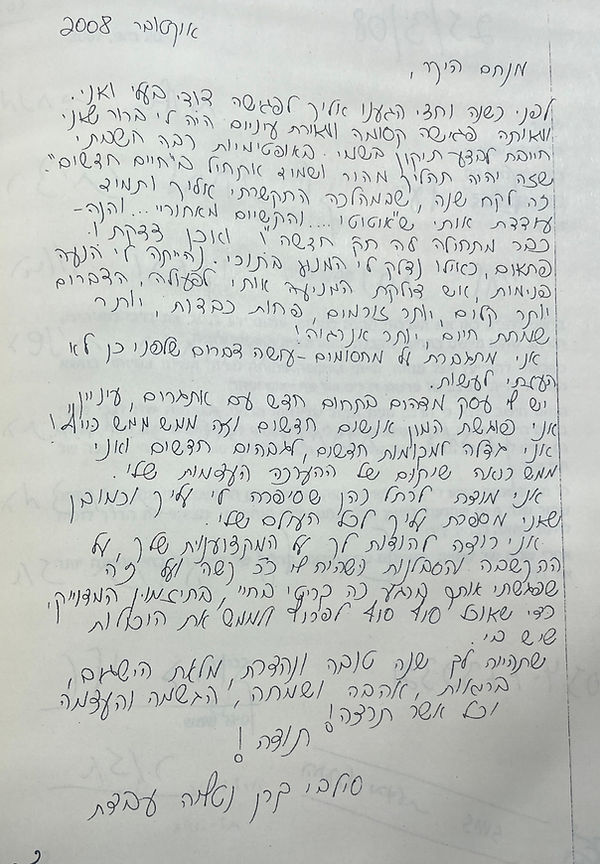 אוקטובר 2008
מנחם היקר,
לפני כשנה וחצי הגענו אליך לפגישה דודי בעלי ואני.
מאותה פגישה קסומה ומאירת עיניים היה לי ברור שאני
חייבת לבצע תיקון בשמי. באופטימיות רבה חשבתי
שזה יהיה תהליך מהיר ושמיד אתחיל ב"חיים חדשים".
זה לקח שנה, שבמהלכה התקשרתי אליך ותמיד
עודדת אותי ש"אוטוטו .... והקשיים מאחוריי .... והנה –
כבר מתחילה לה תק' חדשה"! ואוכן צדקת!.
פתאום, כאילו נדלק לי המנוע בתוכי. והייתה לי הנעה
פנימית, אש דולקת המניעה אותי לפעולה. הדברים
יותר קלים, יותר זורמים, פחות כבדות, יותר
שמחת חיים, יותר אנרגיה!
אני מתגברת על מחסומים – עושה דברים שלפני כן לא
העזתי לעשות.
יש לי עסק מדהים בתחום חדש עם אתגרים, עיניין,
אני פוגשת המון אנשים חדשים וזה ממש ממש כייף!
אני גדלה למקומות חדשים, לגבהים חדשים ואני
ממש רואה שינוים של ההערכה העצמית שלי.
אני מודה לרחל כהן שסיפרה לי עליך וכמובן
שאני מספרת עליך לכל העולם שלי.
אני רוצה להודות לך על המקצוענות שלך, על
ההקשבה והסבלנות כשהיה לי כ"כ קשה ועל זה
שפגשתי אותך ברגע כה קריטי בחיי, בתיזמון המדוייק,
כדי שאוכל סוף סוף לפרוח ולממש את היכולות
שיש בי.
שתהייה לך שנה טובה ונהדרת, מלאת הישגים,
בריאות, אהבה ושמחה, הגשמה והעצמה
וכל אשר תרצה!
תודה!
סילבי קרן נטליה עובדת